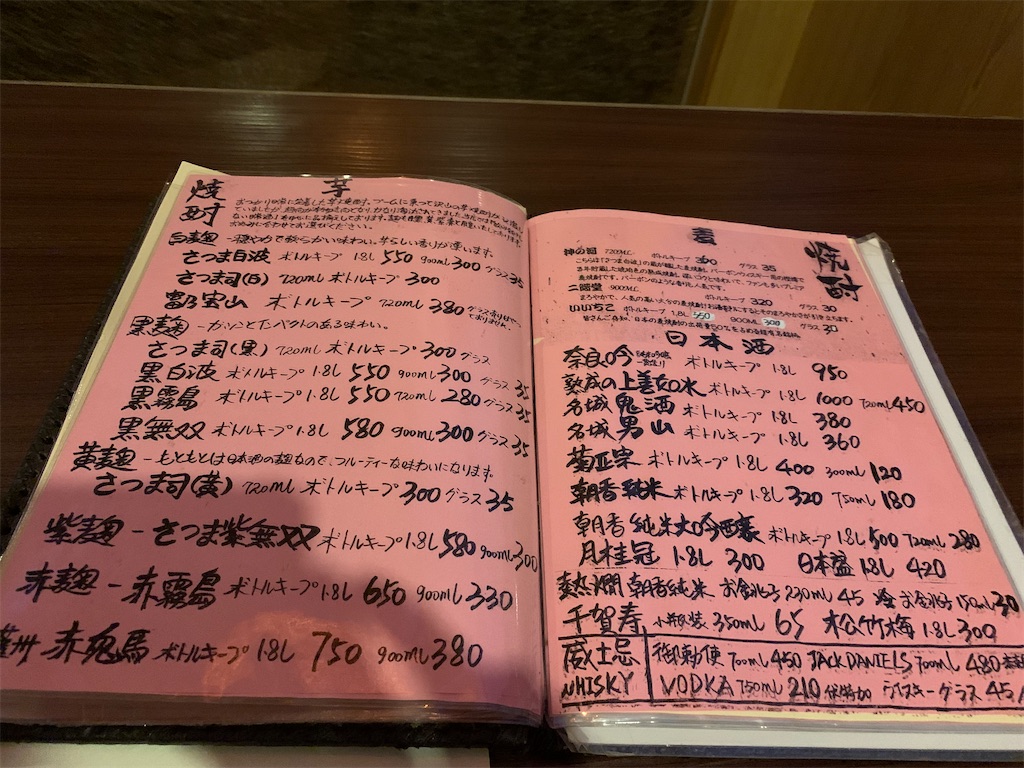 焼酎 芋
白麹 - 穏やかで軟らかい味わい。芋らしい香りが漂います。
さつま白波 ボトルキープ 1.8L 550 900mL 300 グラス 35
さつま司(白) 720mL ボトルキープ 300
富乃宝山 ボトルキープ 720mL 380 グラス売りは
ておりません。
黒麹 - ガツンとインパクトのある味わい。
さつま司(黒) 720mL ボトルキープ 300 グラス 35
黒白波 ボトルキープ 1.8L 550 900mL 300 グラス 35
黒霧島 ボトルキープ 1.8L 550 720mL 280 グラス 35
黒無双 ボトルキープ 1.8L 580 900mL 300 グラス 35
黄麹 - もともとは日本酒の麹なので、フルーティーな味わいになります。
さつま司(黄) 720mL ボトルキープ 300 グラス 35
紫麹 - さつま紫無双 ボトルキープ 1.8L 580 900mL 300
赤麹 - 赤霧島 ボトルキープ 1.8L 650 900mL 330
薩州 赤兎馬 ボトルキープ 1.8L 750 900mL 380
麦 焼酎
神の河 720ML ボトルキープ 300 グラス 35
二階堂 900ML ボトルキープ 320 グラス 30
まろやかで、人気の高い大分の麦焼酎
いいちこ ボトルキープ 1.8L 550 900ML 300 グラス 30
日本酒
奈良の吟 ボトルキープ 1.8L 950
熟成の上善如水 ボトルキープ 1.8L 1000 720mL 450
名城 鬼酒 ボトルキープ 1.8L 380
名城 男山 ボトルキープ 1.8L 360
菊正宗 ボトルキープ 1.8L 400 300mL 120
朝香 純米 ボトルキープ 1.8L 320 750mL 180
朝香 純米大吟醸 ボトルキープ 1.8L 500 720mL 280
月桂冠 1.8L 300 日本盛 1.8L 420
熱燗 朝香純米 お銚子 230mL 45 冷 お銚子 150mL 30
千賀寿 小瓶 350mL 65 松竹梅 1.8L 300
威士忌 御勅使 700mL 450 JACK DANIELS 700mL 480
WHISKY VODKA 750mL 210 伏特加 ウイスキーグラス 45